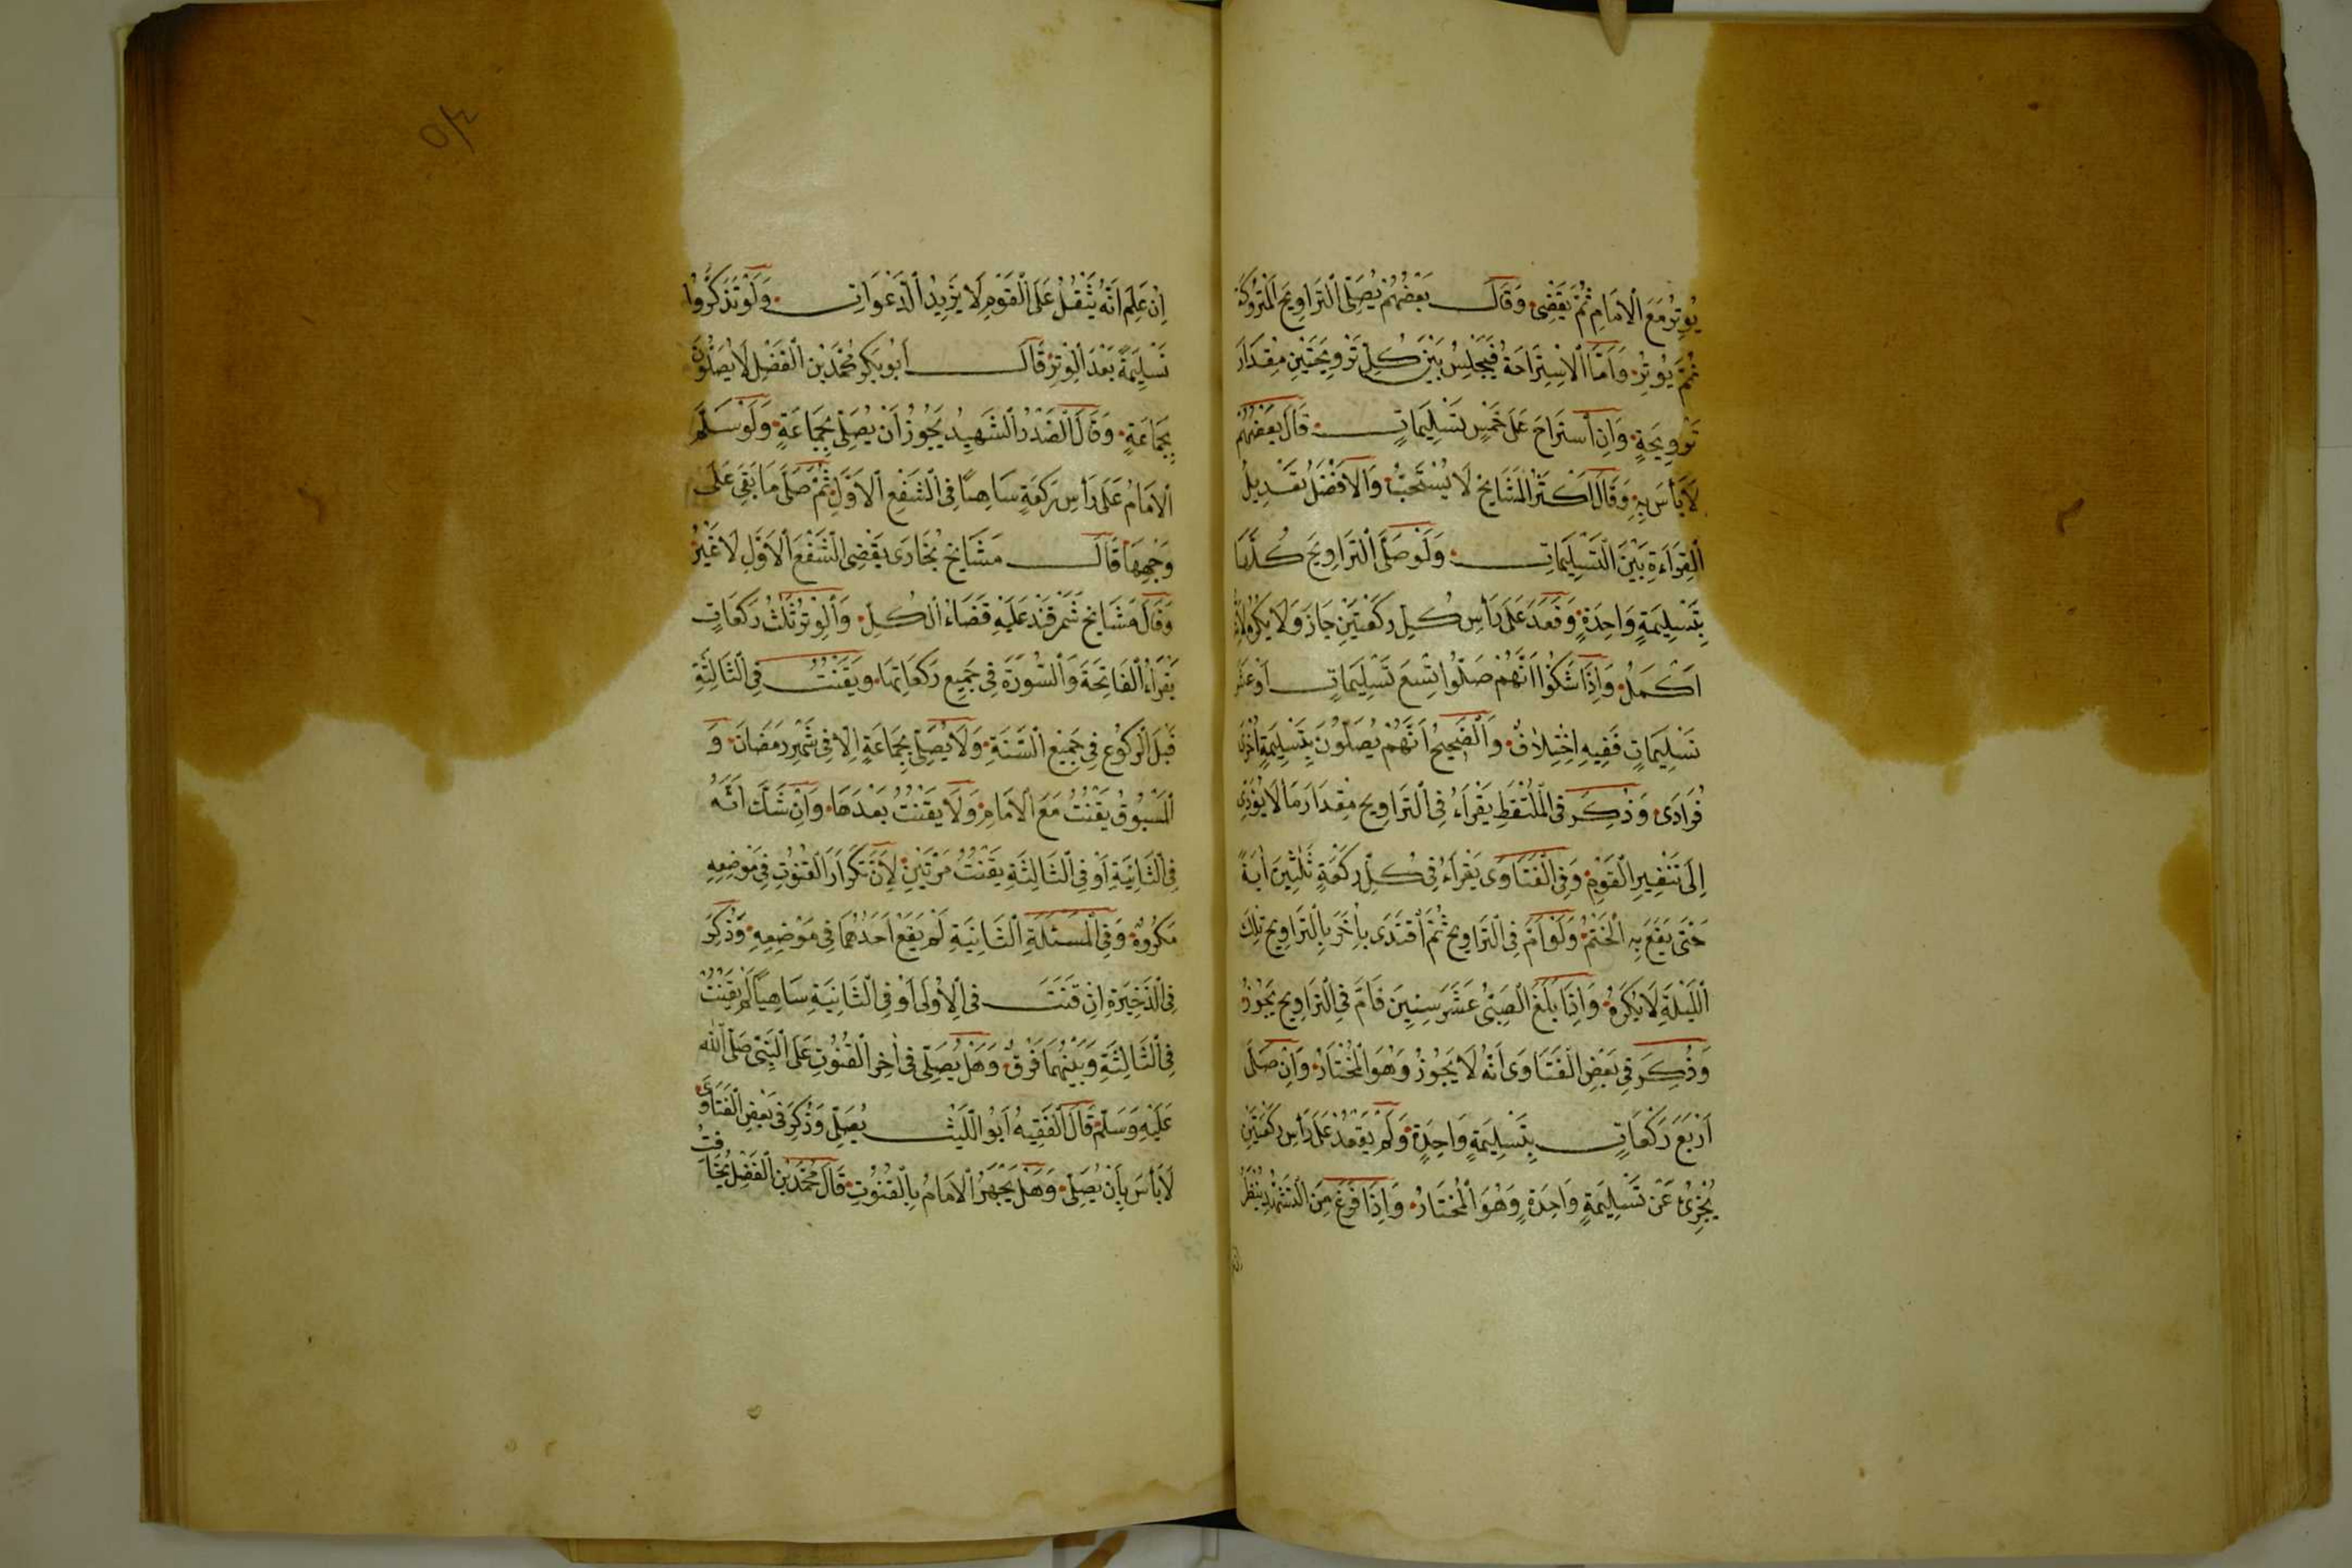 يُوتِرُ مَعَ الْاِمَامِ ثُمَّ يَقْضِى وَقَالَ بَعْضُهُمْ يُصَلِّى الْتَرَاوِيحَ الْمَتْرُوكَةَ
ثُمَّ يُوتِرُ وَاَمَّا الْاِسْتِرَاحَةُ فَيَجْلِسُ بَيْنَ كُلِّ تَرْوِيحَتَيْنِ مِقْدَارَ
تَرْوِيحَةٍ وَاِنِ اسْتَرَاحَ عَلَى خَمْسِ تَسْلِيمَاتٍ قَالَ بَعْضُهُمْ
لَا بَأْسَ بِهِ وَقَالَ اَكْثَرُ الْمَشَايِخِ لَا يُسْتَحَبُّ وَالْاَفْضَلُ تَعْدِيلُ
الْقِرَاءَةِ بَيْنَ التَّسْلِيمَاتِ وَلَوْ صَلَّى التَّرَاوِيحَ كُلَّهَا
بِتَسْلِيمَةٍ وَاحِدَةٍ وَقَعَدَ عَلَى رَأْسِ كُلِّ رَكْعَتَيْنِ جَازَ وَلَا يُكْرَهُ لِاَنَّهُ
اَكْمَلُ وَاِذَا شَكُّوا اَنَّهُمْ صَلَّوْا تِسْعَ تَسْلِيمَاتٍ اَوْ عَشْرَ
تَسْلِيمَاتٍ فَفِيهِ اِخْتِلَافٌ وَالصَّحِيحُ اَنَّهُمْ يُصَلُّونَ بِتَسْلِيمَةٍ اُخْرَى
فُرَادَى وَذُكِرَ فِى الْمُلْتَقَطِ يَقْرَاُ فِى التَّرَاوِيحِ مِقْدَارَ مَا لَا يُؤَدِّى
اِلَى تَنْفِيرِ الْقَوْمِ وَفِى الْفَتَاوَى يَقْرَاُ فِى كُلِّ رَكْعَةٍ ثَلٰثِينَ اٰيَةً
حَتَّى يَقَعَ بِهِ الْخَتْمُ وَلَوْ اَمَّ فِى التَّرَاوِيحِ ثُمَّ اقْتَدَى بِاٰخَرَ بِالتَّرَاوِيحِ تِلْكَ
اللَّيْلَةِ لَا يُكْرَهُ وَاِذَا بَلَغَ الصَّبِىُّ عَشْرَ سِنِينَ فَاَمَّ فِى التَّرَاوِيحِ يَجُوزُ
وَذُكِرَ فِى بَعْضِ الْفَتَاوَى اَنَّهُ لَا يَجُوزُ وَهُوَ الْمُخْتَارُ وَاِنْ صَلَّى
اَرْبَعَ رَكَعَاتٍ بِتَسْلِيمَةٍ وَاحِدَةٍ وَلَمْ يَقْعُدْ عَلَى رَأْسِ رَكْعَتَيْنِ
يُجْزِئُ عَنْ تَسْلِيمَةٍ وَاحِدَةٍ وَهُوَ الْمُخْتَارُ وَاِذَا فَرَغَ مِنَ التَّشَهُّدِ يَنْظُرُ
اِنْ عَلِمَ اَنَّهُ يَثْقُلُ عَلَى الْقَوْمِ لَا يَزِيدُ الدَّعَوَاتِ وَلَوْ تَذَكَّرُوا
تَسْلِيمَةً بَعْدَ الْوِتْرِ قَالَ اَبُو بَكْرٍ مُحَمَّدُ بْنُ الْفَضْلِ لَا يُصَلُّونَ
بِجَمَاعَةٍ وَقَالَ الصَّدْرُ الشَّهِيدُ يَجُوزُ اَنْ يُصَلِّى بِجَمَاعَةٍ وَلَوْ سَلَّمَ
الْاِمَامُ عَلَى رَأْسِ رَكْعَةٍ سَاهِيًا فِى الشَّفْعِ الْاَوَّلِ ثُمَّ صَلَّى مَا بَقِىَ عَلَى
وَجْهِهَا قَالَ مَشَايِخُ بُخَارَى يَقْضِى الشَّفْعَ الْاَوَّلِ لَا غَيْرُ
وَقَالَ مَشَايِخُ سَمَرْقَنْدَ عَلَيْهِ قَضَاءُ الْكُلِّ وَالْوِتْرُ ثَلٰثُ رَكَعَاتٍ
يَقْرَاُ الْفَاتِحَةَ وَالسُّورَةَ فِى جَمِيعِ رَكَعَاتِهَا وَيَقْنُتُ فِى الثَّالِثَةِ
قَبْلَ الرُّكُوعِ فِى جَمِيعِ السَّنَةِ وَلَا يُصَلِّى بِجَمَاعَةٍ اِلَّا فِى شَهْرِ رَمَضَانَ وَ
الْمَسْبُوقُ يَقْنُتُ مَعَ الْاِمَامِ وَلَا يَقْنُتُ بَعْدَهَا وَاِنْ شَكَّ اَنَّهُ
فِى الثَّانِيَةِ اَوْ فِى الثَّالِثَةِ يَقْنُتُ مَرَّتَيْنِ لِاَنَّ تَكْرَارَ الْقُنُوتِ فِى مَوْضِعِهِ
مَكْرُوهٌ وَفِى الْمَسْئَلَةِ الثَّانِيَةِ لَمْ يَقَعْ اَحَدُهُمَا فِى مَوْضِعِهِ وَذُكِرَ
فِى الذَّخِيرَةِ اِنْ قَنَتَ فِى الْاُولَى اَوْ فِى الثَّانِيَةِ سَاهِيًا لَمْ يَقْنُتْ
فِى الثَّالِثَةِ وَبَيْنَهُمَا فَرْقٌ وَهَلْ يُصَلِّى فِى اٰخِرِ الْقُنُوتِ عَلَى النَّبِىِّ صَلَّى اللّٰهُ
عَلَيْهِ وَسَلَّمَ قَالَ الْفَقِيهُ اَبُو اللَّيْثِ يُصَلِّى وَذُكِرَ فِى بَعْضِ الْفَتَاوَى
لَا بَأْسَ بِاَنْ يُصَلِّى وَهَلْ يَجْهَرُ الْاِمَامُ بِالْقُنُوتِ قَالَ مُحَمَّدُ بْنُ الْفَضْلِ يُخَافِتُ